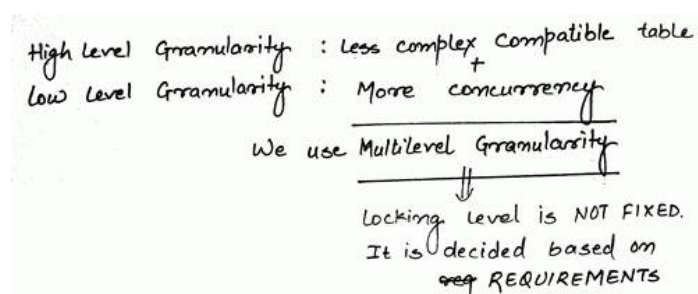 High Level Granularity : Less complex Compatible table
+
Low Level Granularity : More concurrency
We use Multilevel Granularity
⇓
Locking Level is NOT FIXED.
It is decided based on
REQUIREMENTS